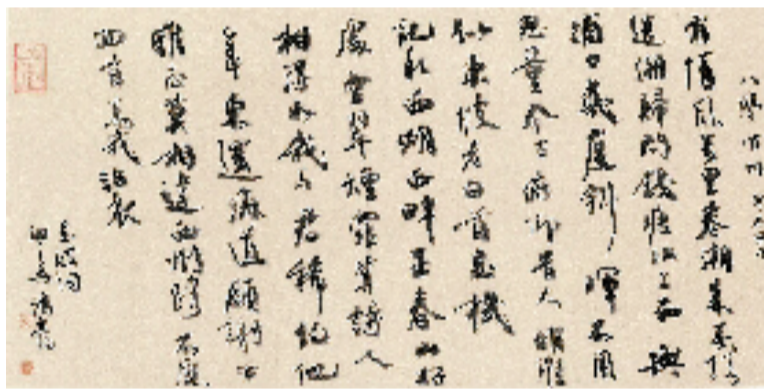 八聲甘州
有情風萬里卷潮來無情
送潮歸問錢塘江上西興
浦口幾度斜暉不用
思量今古俯仰昔人非誰
似東坡老白首忘機
記取西湖西畔正春山好
處空翠煙霏算詩人
相得如我與君稀約他
年東還海道願謝公
雅志莫相違西州路不應
回首為我沾衣